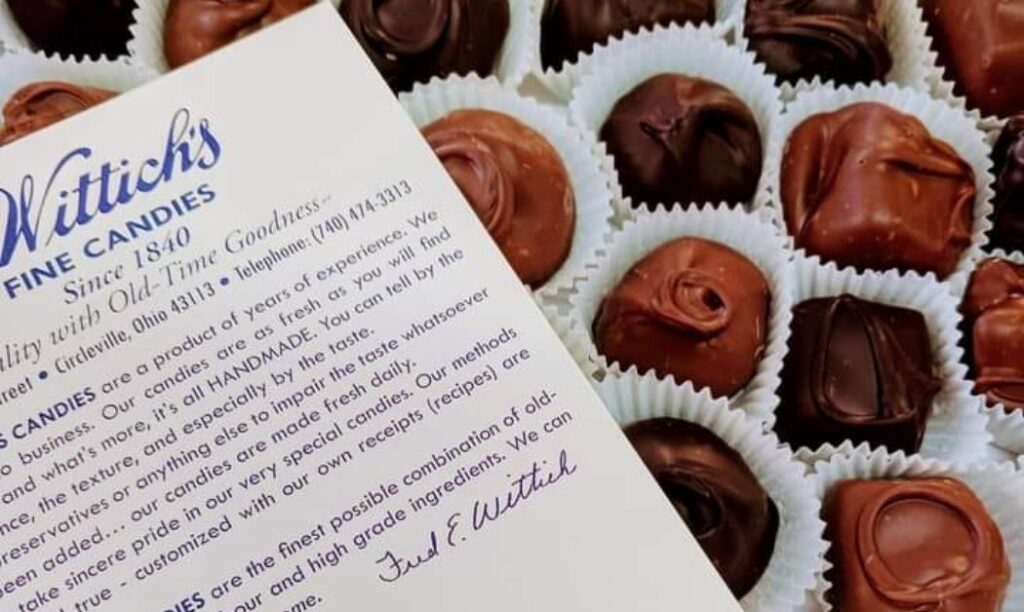 Wittich's
FINE CANDIES
Since 1840
with Old-Time Goodness...
• Circleville, Ohio 43113 • Telephone: (740) 474-3313
CANDIES are a product of years of experience. We
business. Our candies are as fresh as you will find
and what's more, it's all HANDMADE. You can tell by the
the texture, and especially by the taste.
preservatives or anything else to impair the taste whatsoever
been added... our candies are made fresh daily.
take sincere pride in our very special candies. Our methods
true - customized with our own receipts (recipes) are
are the finest possible combination of old-
our and high grade ingredients. We can
Fred E. Wittich